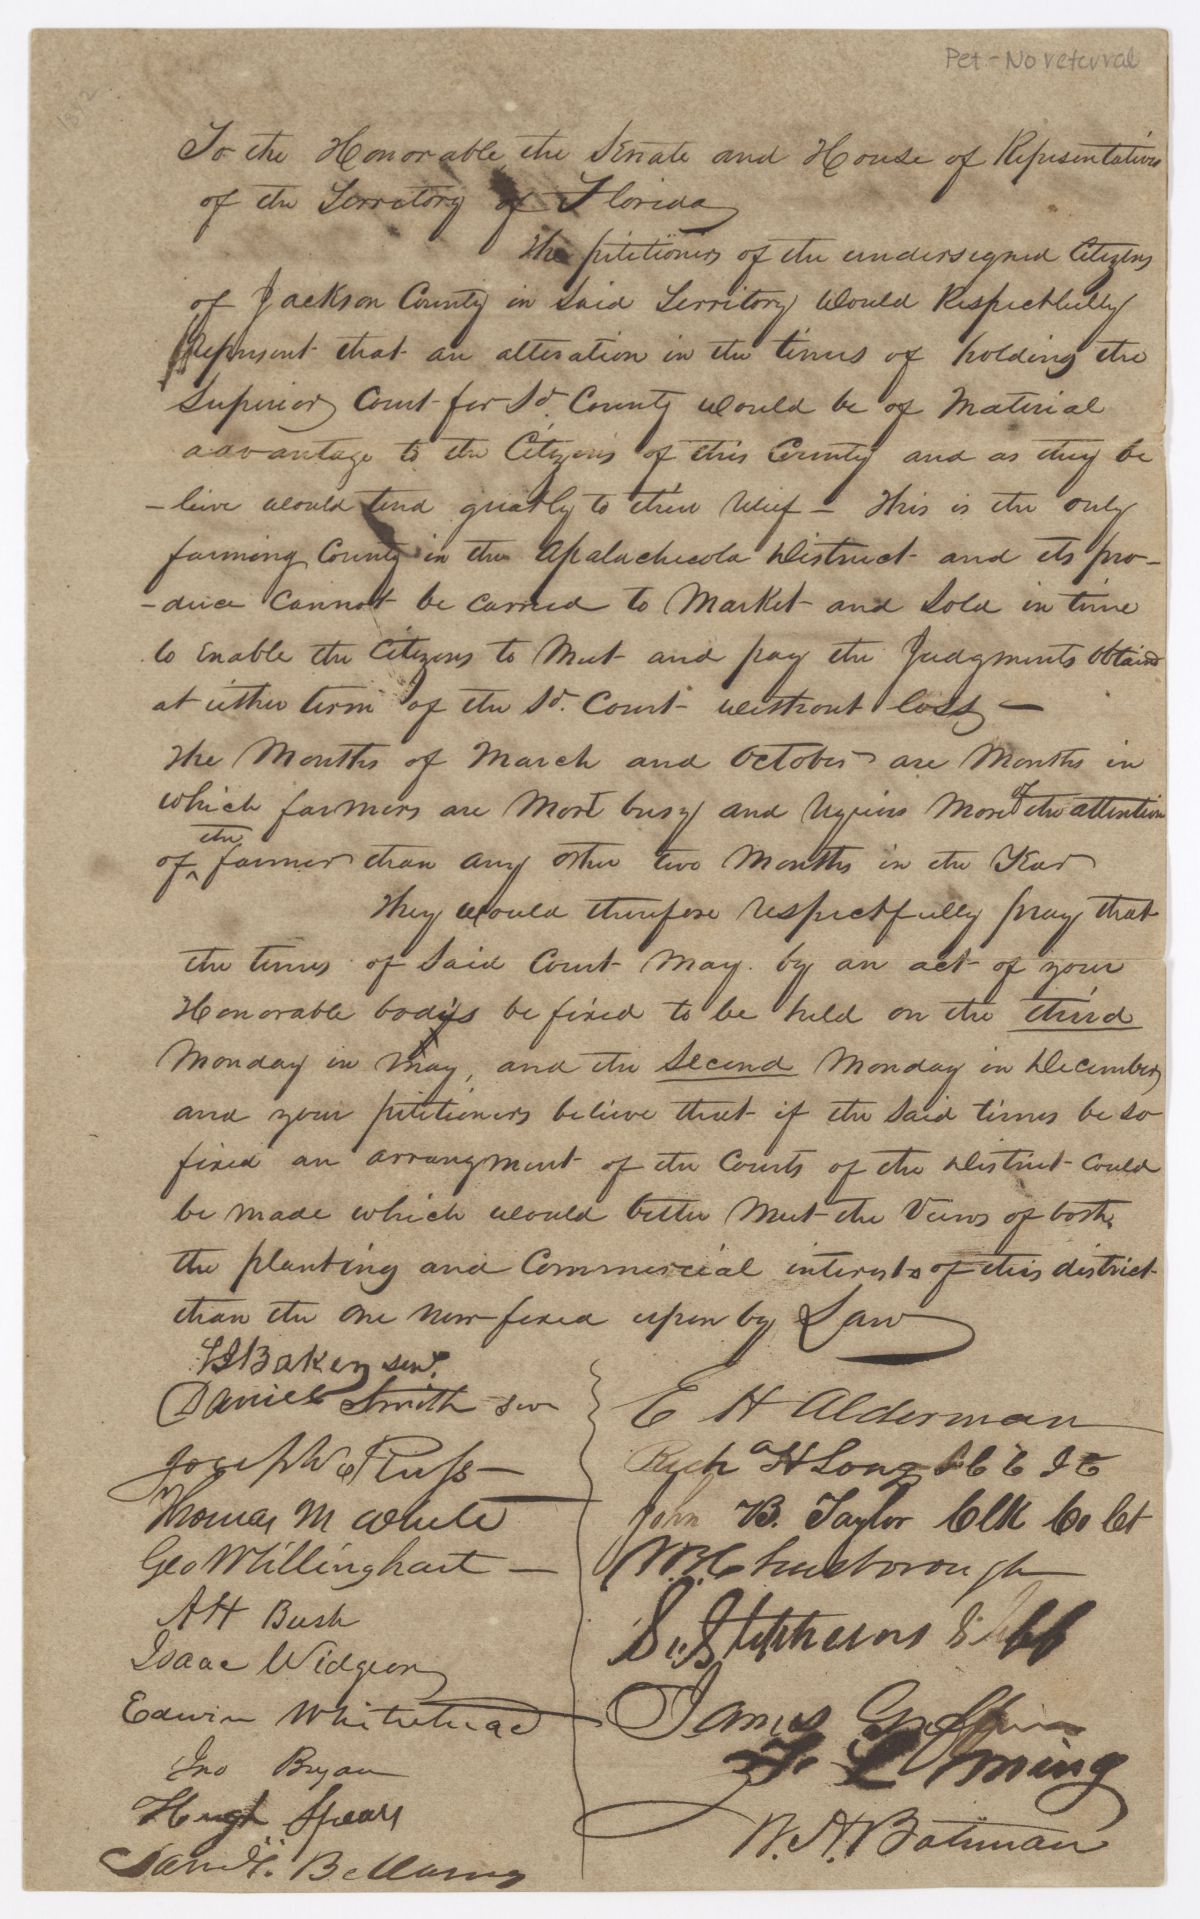 Pet - No referral
1842
To the Honorable the Senate and House of Representatives
of the Territory of Florida
The petitioners of the undersigned Citizens
of Jackson County in said Territory would Respectfully
Represent that an alteration in the times of holding the
Superior Court for Sd. County would be of Material
advantage to the Citizens of this County and as they be
-lieve would tend greatly to their relief - This is the only
farming County in the Apalachecola District and its pro-
-duce cannot be carried to Market and Sold in time
to enable the Citizens to Meet and pay the Judgments obtaind
at either term of the Sd. Court without loss -
The Months of March and October are Months in
which farmers are Most busy and requires More of the attention
of the farmer than any other two Months in the Year
They would therefore respectfully pray that
the times of Said Court May by an act of your
Honorable bodys be fixed to be held on the third
Monday in May, and the Second Monday in December
and your petitioners believe that if the said times be so
fixed an arrangment of the Courts of the District could
be made which would better Meet the Views of both
the planting and Commercial interests of this district
than the one now fixed upon by Law
Baker senr.
Daniel Smith sen
Joseph W Russ
Thomas M White
Geo W Hillinghast
A H Bush
Isaac Widgeon
Edwin Whitehead
Jno Bryan
Hugh Spears
Saml. C. Bellamy
E H Alderman
Richd H Long
John B. Taylor Clk Co Ct
S. Stephens Shff
James Griffin
W. A. Bateman